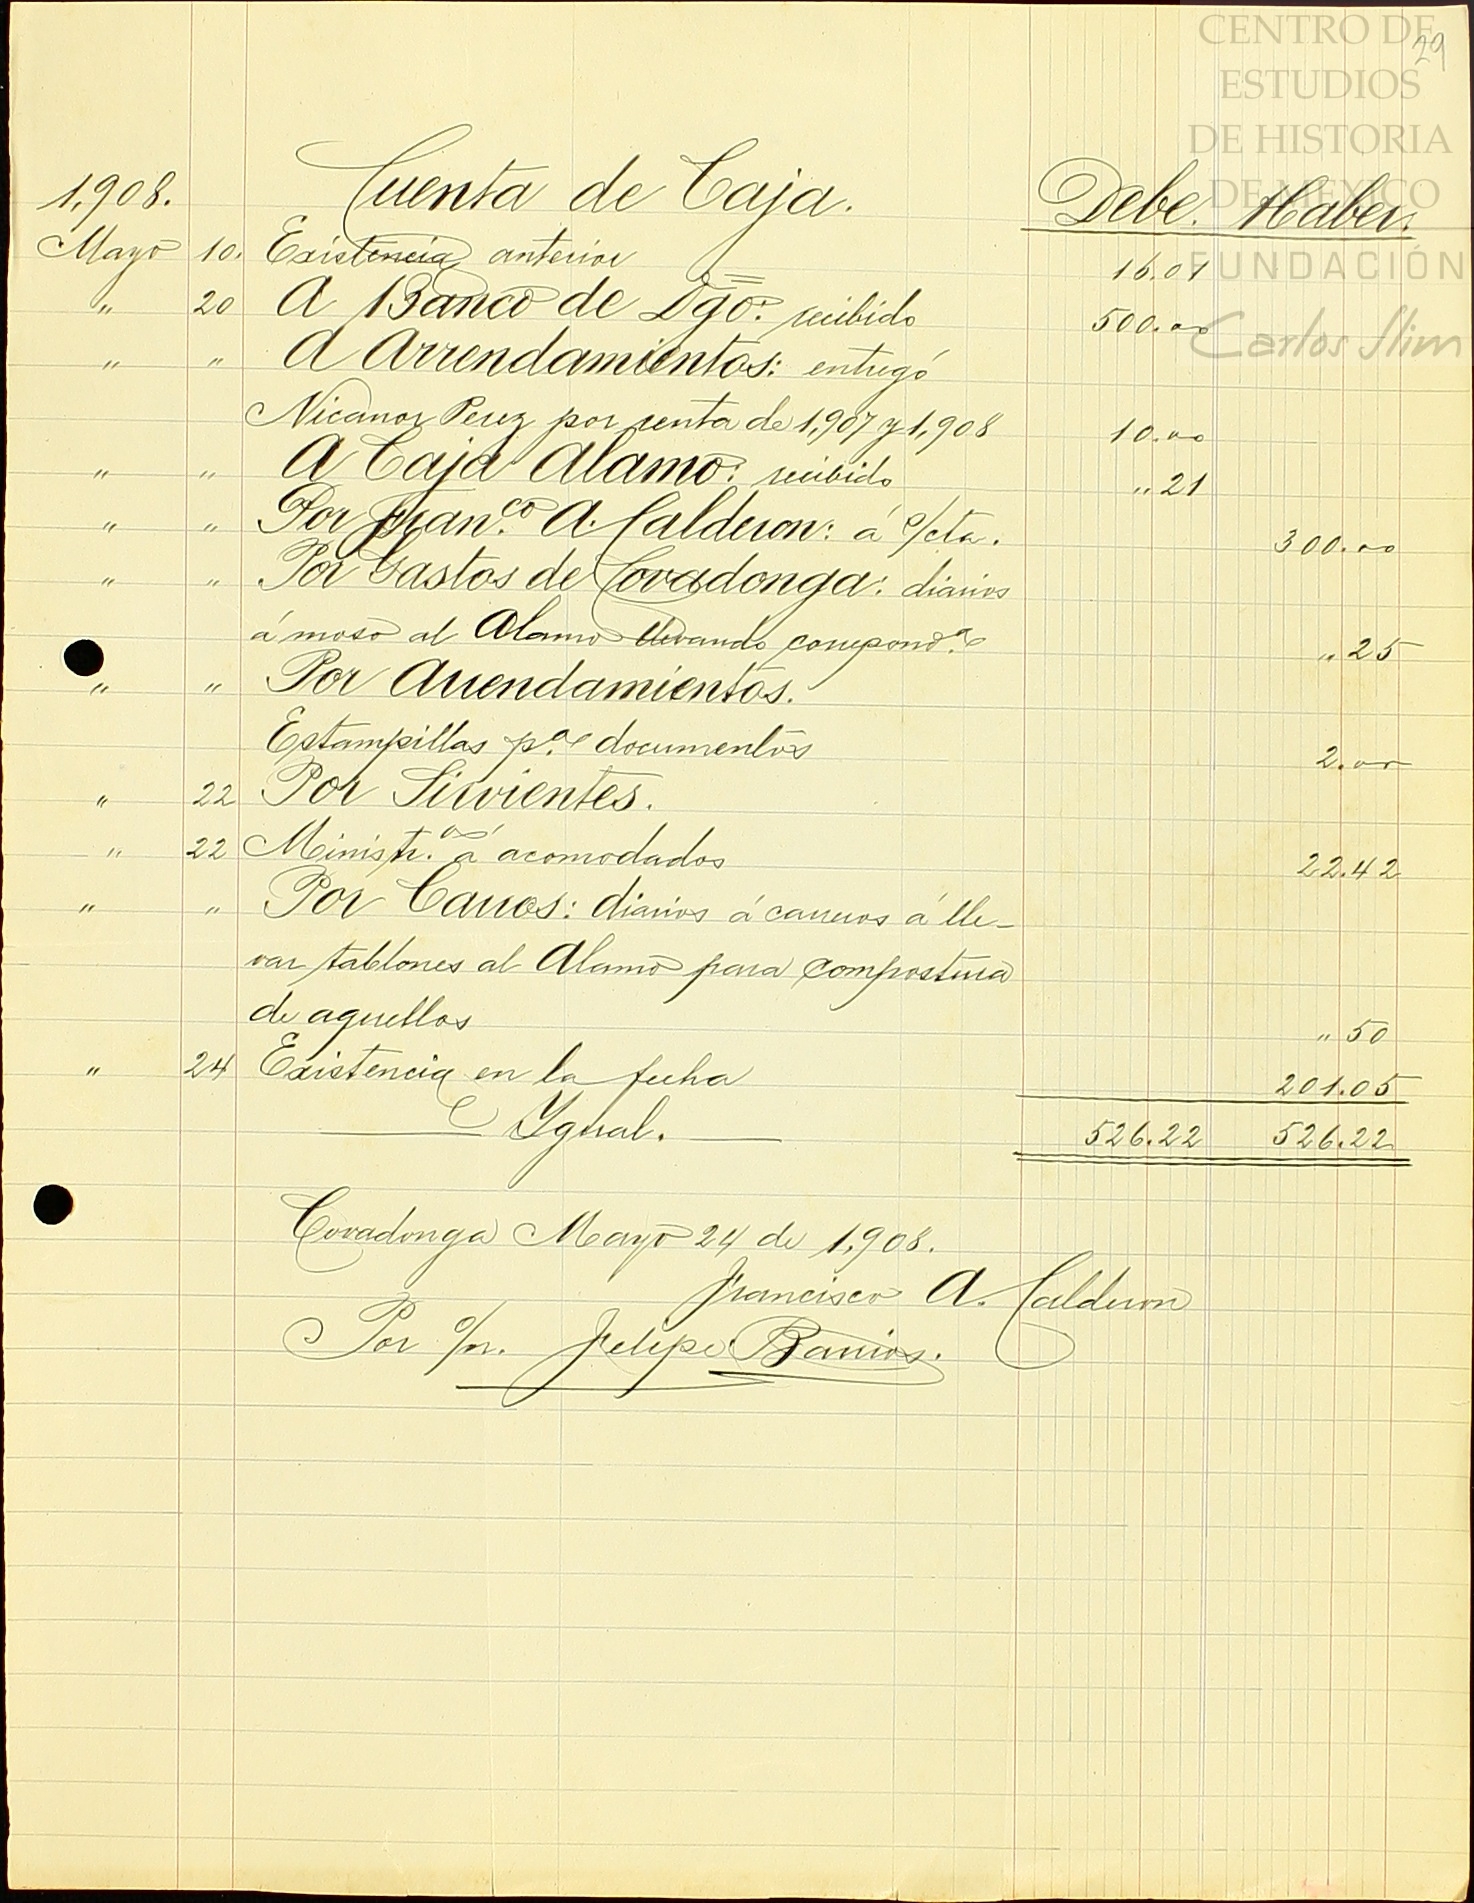 29
CENTRO DE
ESTUDIOS
DE HISTORIA
DE MEXICO
FUNDACIÓN
Carlos Slim
1,908. Cuenta de Caja. Debe. Haber.
Mayo 10. Existencia anterior 16.01
" 20 A Banco de Dgo: recibido 500.00
" " A Arrendamientos: entregó
Nicanor Perez por renta de 1,907 y 1,908 10.00
" " A Caja Alamo: recibido " 21
" " Por Fran.co A. Calderon: á c/cta. 300.00
" " Por Gastos de Covadonga: diarios
á moso al Alamo llevando correpond.a " 25
" " Por Arrendamientos.
Estampillas p.a documentos 2.00
" 22 Por Sirvientes.
" 22 Ministr.as á acomodados 22.42
" " Por Carros: diarios á carreros á lle-
var tablones al Alamo para compostura
de aquellos " 50
" 24 Existencia en la fecha 201.05
Ygual. 526.22 526.22
Covadonga Mayo 24 de 1,908.
Francisco A. Calderon
Por o/n. Felipe Barrios.